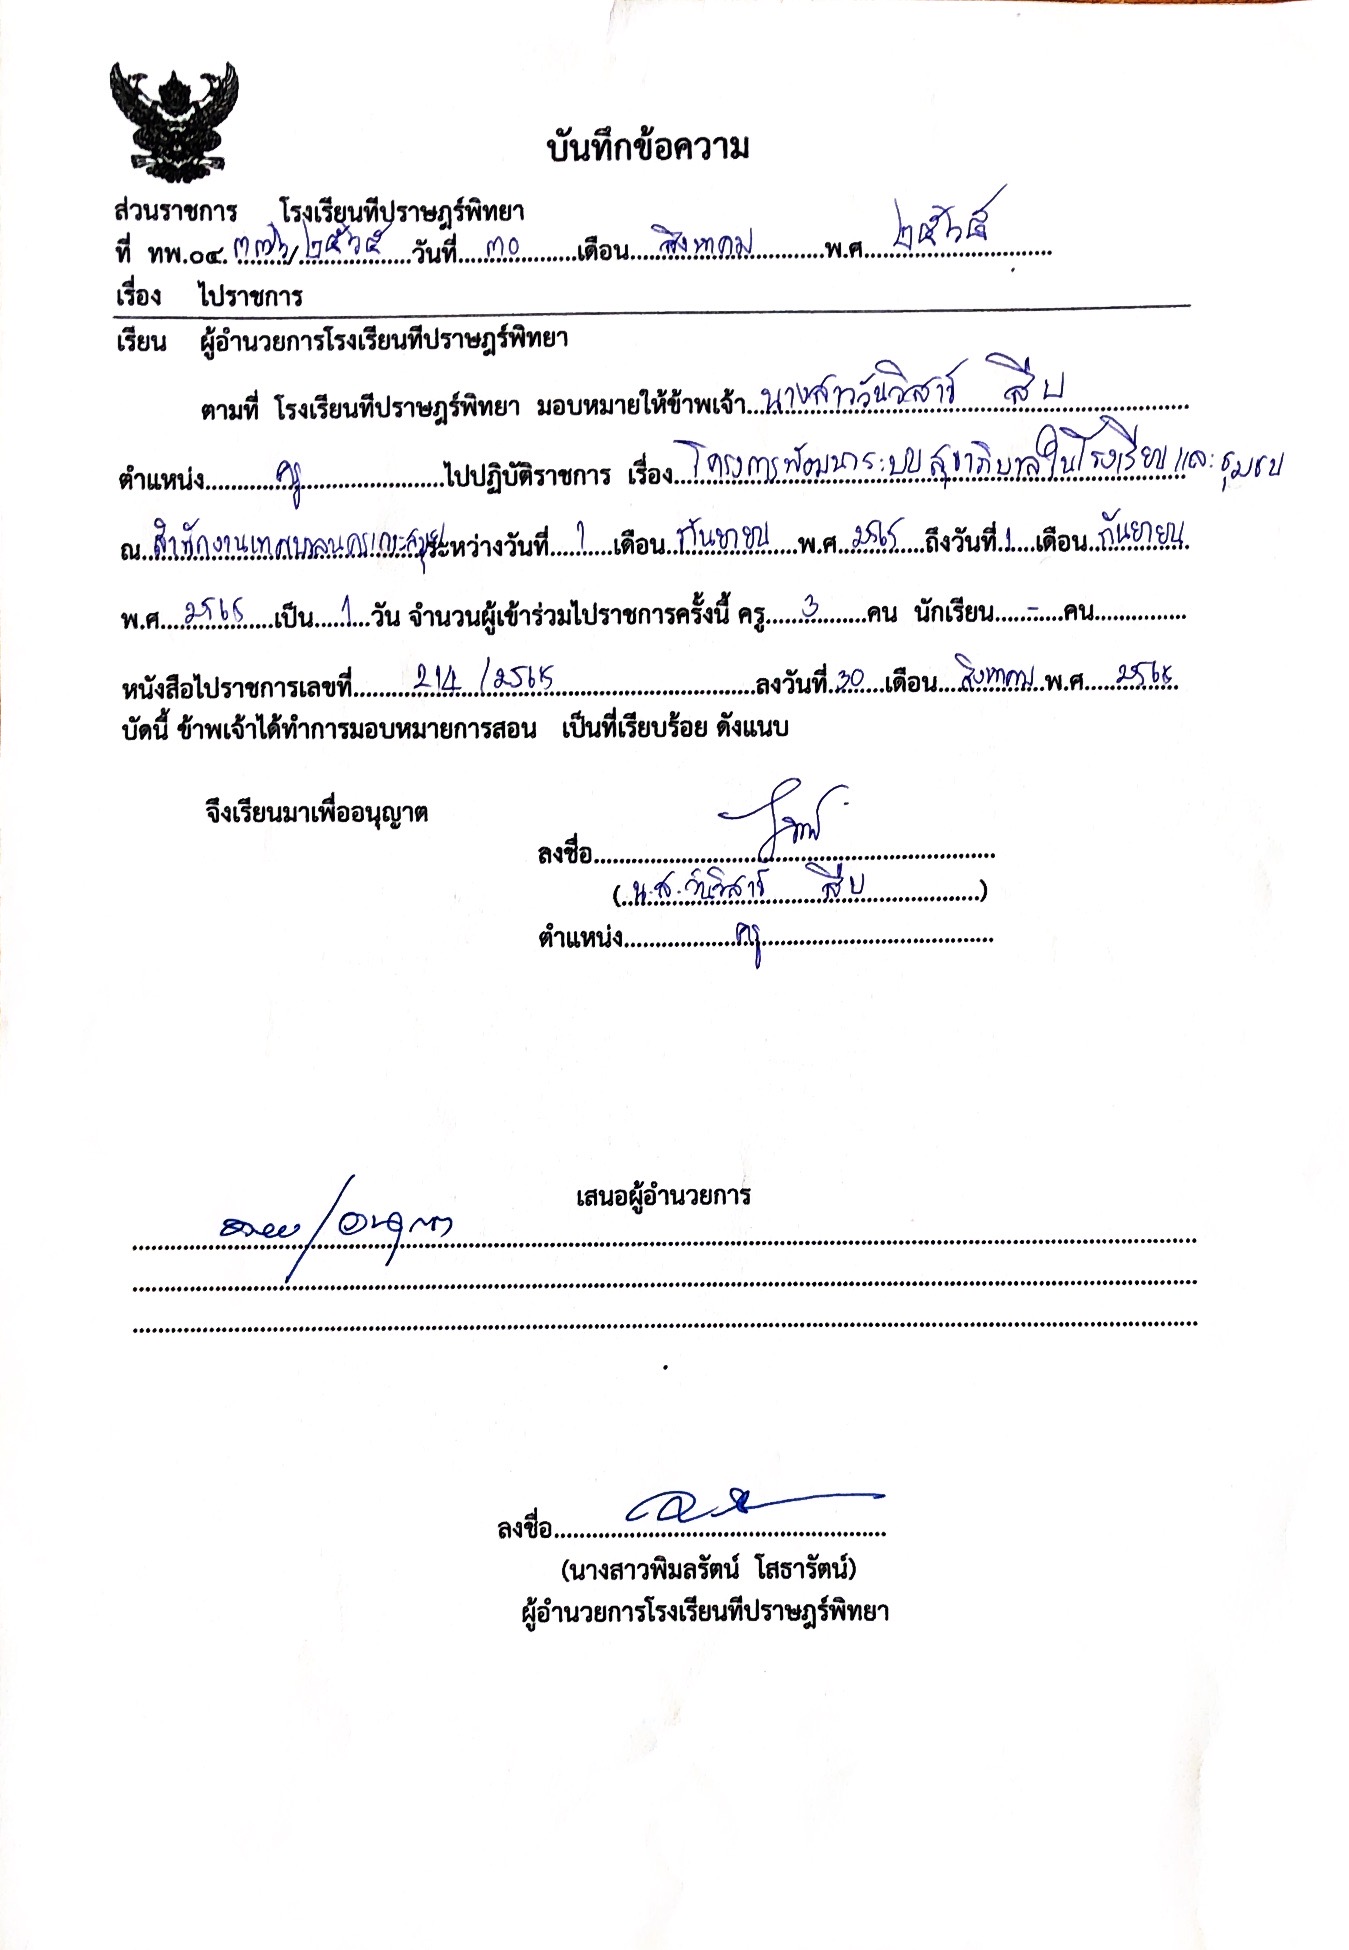 บันทึกข้อความ
ส่วนราชการ โรงเรียนทีปราษฎร์พิทยา
ที่ ทพ.๐๔.๓๗๖/๒๕๖๕ วันที่ ๓๐ เดือน สิงหาคม พ.ศ. ๒๕๖๕
เรื่อง ไปราชการ
เรียน ผู้อำนวยการโรงเรียนทีปราษฎร์พิทยา
ตามที่ โรงเรียนทีปราษฎร์พิทยา มอบหมายให้ข้าพเจ้า นางสาววันวิสาข์ สีบ
ตำแหน่ง ครู ไปปฏิบัติราชการ เรื่อง โครงการพัฒนาระบบสุขาภิบาลในโรงเรียนและชุมชน
ณ สำนักงานเทศบาลนครเกาะสมุย ระหว่างวันที่ 1 เดือน กันยายน พ.ศ. 2565 ถึงวันที่ 1 เดือน กันยายน
พ.ศ. 2565 เป็น 1 วัน จำนวนผู้เข้าร่วมไปราชการครั้งนี้ ครู 3 คน นักเรียน - คน
หนังสือไปราชการเลขที่ 214 /2565 ลงวันที่ 30 เดือน สิงหาคม พ.ศ. 2565
บัดนี้ ข้าพเจ้าได้ทำการมอบหมายการสอน เป็นที่เรียบร้อย ดังแนบ
จึงเรียนมาเพื่ออนุญาต
ลงชื่อ
(น.ส.วันวิสาข์ สีบ)
ตำแหน่ง ครู
เสนอผู้อำนวยการ
ทราบ/อนุญาต
ลงชื่อ
(นางสาวพิมลรัตน์ โสธารัตน์)
ผู้อำนวยการโรงเรียนทีปราษฎร์พิทยา